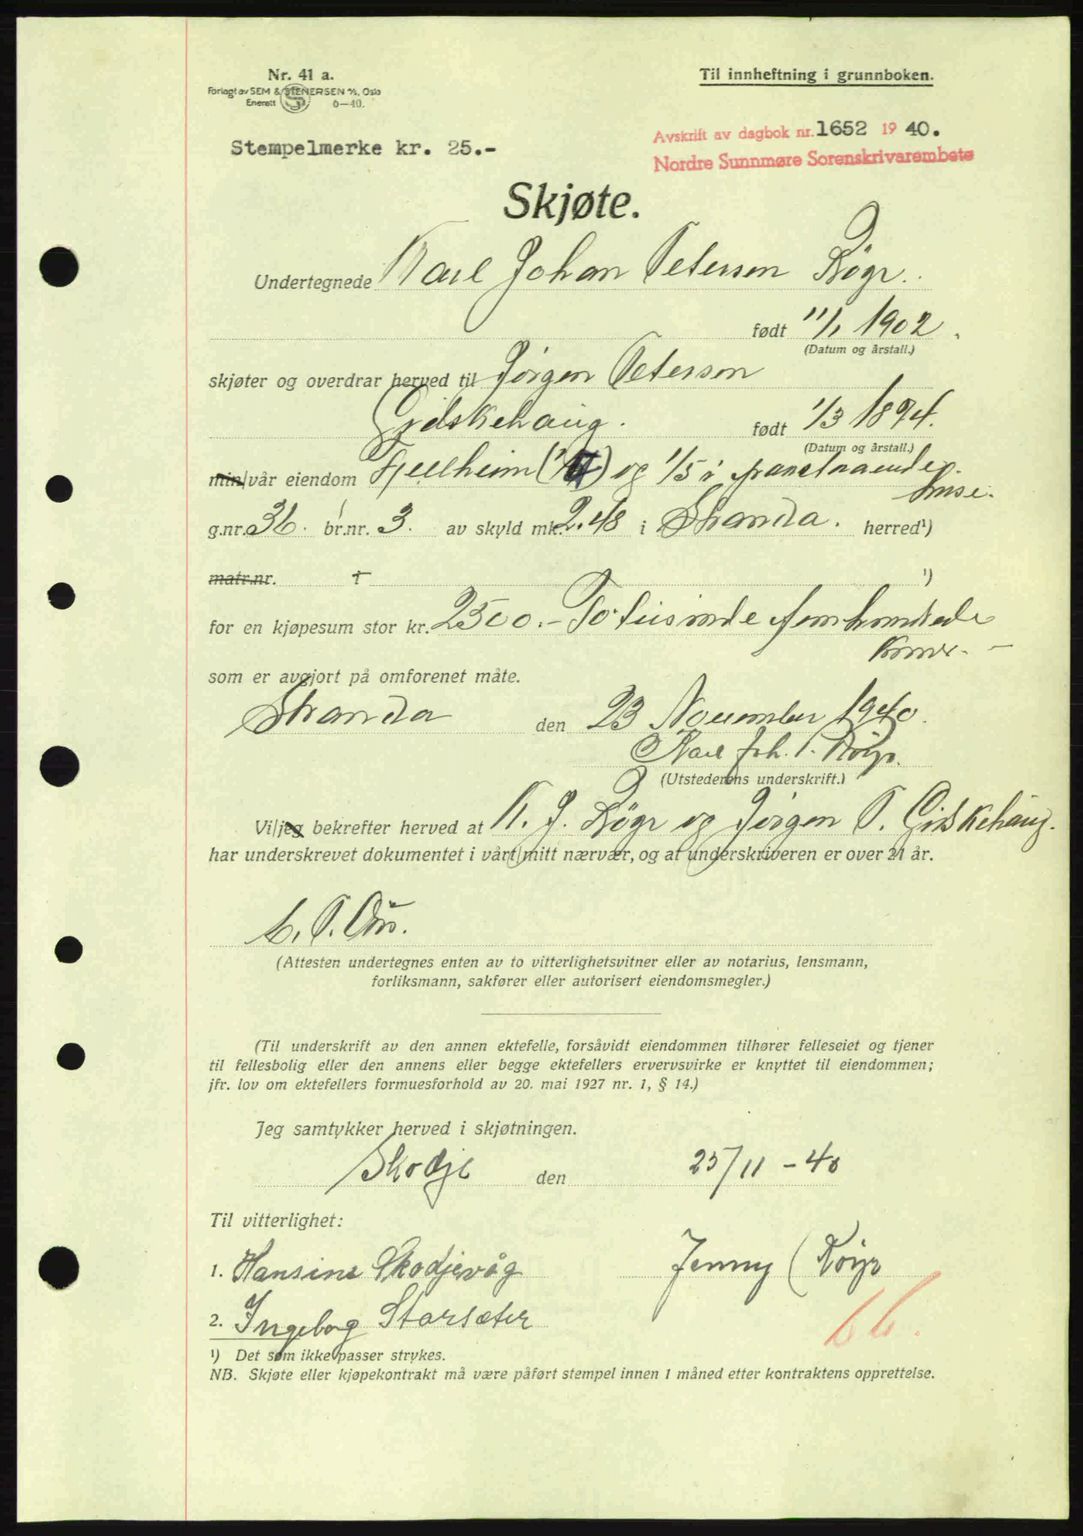 Nr. 41 a.
Forlagt av SEM & STENERSEN A/S, Oslo
Enerett 6—40.
Til innheftning i grunnboken.
Stempelmerke kr. 25.-
Avskrift av dagbok nr. 1652 1940.
Nordre Sunnmøre Sorenskrivarembete
Skjøte.
Undertegnede Karl Johan Petersen Røyr.
født 11/1 1902.
(Datum og årstall.)
skjøter og overdrar herved til Jörgen Peterson
Gidskehaug. født 1/3 1894.
(Datum og årstall.)
min/vår eiendom Fjellheim ( ) og 1/5 i
huse.
g.nr. 36. br.nr. 3. av skyld mk. 2.48 i Stranda. herred¹)
matr.nr. ¹)
for en kjøpesum stor kr. 2500.- To tusinde femhundrede
Kroner. -
som er avgjort på omforenet måte.
Stranda den 23 November 1940.
Karl Joh. P. Røyr.
(Utstederens underskrift.)
Vi/jeg bekrefter herved at K. J. Røyr og Jörgen P. Gidskehaug.
har underskrevet dokumentet i vårt/mitt nærvær, og at underskriveren er over 21 år.
(Attesten undertegnes enten av to vitterlighetsvitner eller av notarius, lensmann,
forliksmann, sakfører eller autorisert eiendomsmegler.)
(Til underskrift av den annen ektefelle, forsåvidt eiendommen tilhører felleseiet og tjener
til fellesbolig eller den annens eller begge ektefellers ervervsvirke er knyttet til eiendommen;
jfr. lov om ektefellers formuesforhold av 20. mai 1927 nr. 1, § 14.)
Jeg samtykker herved i skjøtningen.
Skodje den 25/11 - 40
Til vitterlighet:
1. Hansine Skodjevåg Jenny Røyr
2. Ingeborg Storsæter
66.
¹) Det som ikke passer strykes.
NB. Skjøte eller kjøpekontrakt må være påført stempel innen 1 måned etter kontraktens opprettelse.